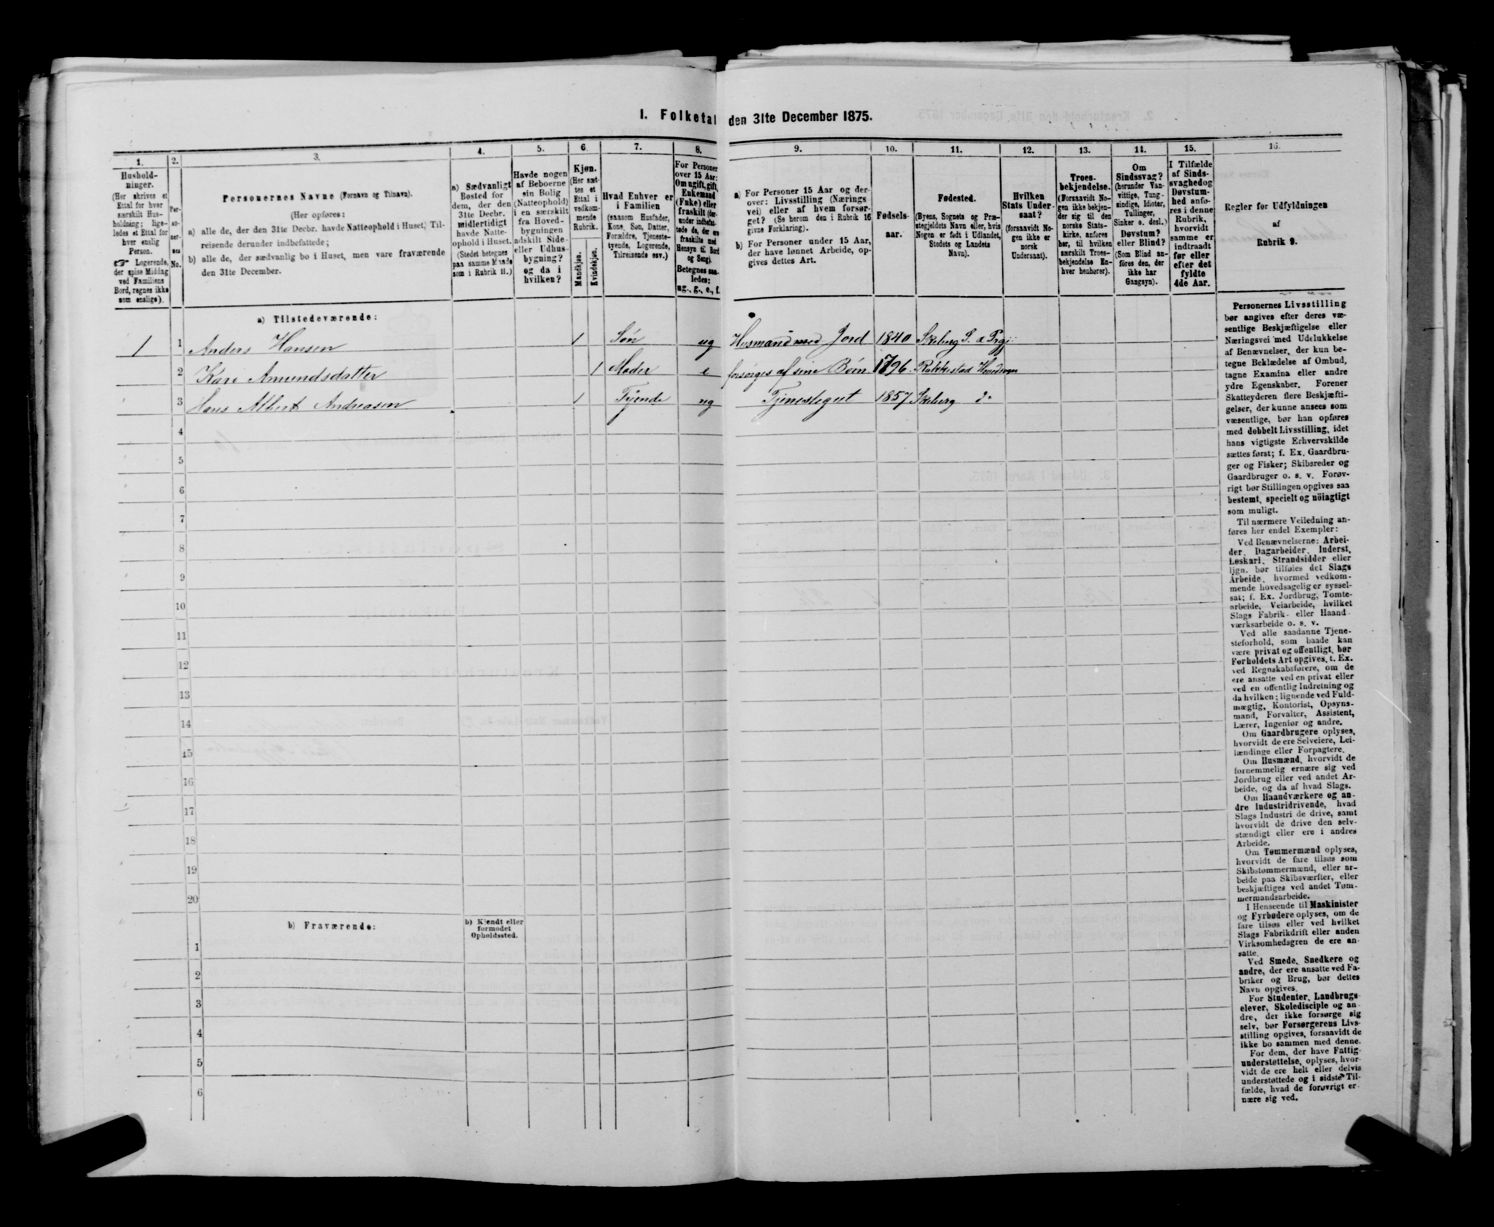 I. Folketal den 31te December 1875.
1.
2.
3.
4.
5.
6.
7.
8.
9.
10.
11.
12.
13.
14.
15.
16.
Husholdninger.
(Her skrives et
Ettal for hver
særskilt Husholdning; ligeledes
et Ettal for
hver enslig
Person.
☞ Logerende,
der spise Middag
ved Familiens
Bord, regnes ikke
som enslige).
Personernes No.
Personernes Navne (Fornavn og Tilnavn).
(Her opføres:
a) alle de, der den 31te Decbr. havde Natteophold i Huset; Tilreisende derunder indbefattede;
b) alle de, der sædvanlig bo i Huset, men vare fraværende
den 31te December.
a) Sædvanligt
Bosted for
dem, der den
31te Decbr.
midlertidigt
havde Natteophold i Huset.
(Stedet betegnes
paa samme Maade
som i Rubrik 11.)
Havde nogen
af Beboerne
sin Bolig
(Natteophold)
i en særskilt
fra Hovedbygningen
adskilt Side- eller Udhusbygning?
og da i
hvilken?
Kjøn.
(Her sættes et
Ettal i
vedkommende
Rubrik.
Mandkjøn.
Kvindekjøn.
Hvad Enhver er
i Familien
(saasom Husfader,
Kone, Søn, Datter,
Forældre, Tjenestetyende, Logerende,
Tilreisende osv.)
For Personer
over 15 Aar:
Om ugift, gift,
Enkemand
(Enke) eller
fraskilt
Betegnes saaledes:
ug., g., e., f.
a) For Personer 15 Aar og derover: Livsstilling (Næringsvei) eller af hvem forsørget? (Se herom den i Rubrik 16
givne Forklaring).
b) For Personer under 15 Aar,
der have lønnet Arbeide, opgives dettes Art.
Fødselsaar.
Fødested.
(Byens, Sognets og Præstegjeldets Navn eller, hvis
Nogen er født i Udlandet,
Stedets og Landets
Navn).
Hvilken
Stats Undersaat?
(forsaavidt Nogen ikke er
norsk
Undersaat).
Troesbekjendelse.
(Forsaavidt Nogen ikke bekjender sig til den
norske Statskirke, anføres
her, til hvilken
særskilt Troesbekjendelse Enhver henhører).
Om
Sindssvag?
(herunder Vanvittige, Tungsindige, Idioter,
Tullinger,
Sinker o. desl.)
Døvstum?
eller Blind?
(Som Blind anføres den, der
ikke har
Gangsyn).
I Tilfælde
af Sindssvaghed og
Døvstumhed anføres i denne
Rubrik,
hvorvidt
samme er
indtraadt
før eller
efter det
fyldte
4de Aar.
Regler for Udfyldningen
af
Rubrik 9.
a) Tilstedeværende:
1 1 Anders Hansen 1 Søn ug Husmand med Jord 1840 Skiberg S. a Prgj:
2 Kari Amundsdatter 1 Moder e forsørges af sine Børn 1796 Rakkestad
3 Hans Albert Andreasen 1 Tjende ug Tjenestegut 1857 Skiberg do
4
5
6
7
8
9
10
11
12
13
14
15
16
17
18
19
20
b) Fraværende:
b) Kjendt eller
formodet
Opholdssted.
1
2
3
4
5
6
Personernes Livsstilling
bør angives efter deres væsentlige Beskjæftigelse eller
Næringsvei med Udelukkelse
af Benævnelser, der kun betegne Beklædelse af Ombud,
tagne Examina eller andre
ydre Egenskaber. Forener
Skatteyderen flere Beskjæftigelser, der kunne ansees som
væsentlige, bør han opføres
med dobbelt Livsstilling, idet
hans vigtigste Erhvervskilde
sættes først; f. Ex. Gaardbruger og Fisker; Skibsreder og
Gaardbruger o. s. v. Forøvrigt bør Stillingen opgives saa
bestemt, specielt og nöiagtigt
som muligt.
Til nærmere Veiledning anføres her endel Exempler:
Ved Benævnelserne: Arbeider, Dagarbeider, Inderst,
Løskarl, Strandsidder eller
lign. bør tilføies det Slags
Arbeide, hvormed vedkommende hovedsagelig er sysselsat; f. Ex. Jordbrug, Tomtearbeide, Veiarbeide, hvilket
Slags Fabrik- eller Haandværksarbeide o. s. v.
Ved alle saadanne Tjenesteforhold, som baade kan
være privat og offentligt, bør
Forholdets Art opgives, t. Ex.
ved Regnskabsførere, om de
ere ansatte ved en privat eller
ved en offentlig Indretning og
da hvilken; lignende ved Fuldmægtig, Kontorist, Opsynsmand, Forvalter, Assistent,
Lærer, Ingeniør og andre.
Om Gaardbrugere oplyses,
hvorvidt de ere Selveiere, Leilændinge eller Forpagtere.
Om Husmænd, hvorvidt de
fornemmelig ernære sig ved
Jordbrug eller ved andet Arbeide, og da af hvad Slags.
Om Haandværkere og andre Industridrivende, hvad
Slags Industri de drive, samt
hvorvidt de drive den selvstændigt eller ere i andres
Arbeide.
Om Tømmermænd oplyses,
hvorvidt de fare tilsøs som
Skibstømmermænd, eller arbeide paa Skibsværfter, eller
beskjæftiges ved andet Tømmermandsarbeide.
I Henseende til Maskinister
og Fyrbødere oplyses, om de
fare tilsøs eller ved hvilket
Slags Fabrikdrift eller anden
Virksomhedsgren de ere ansatte.
Ved Smede, Snedkere og
andre, der ere ansatte ved Fabriker og Brug, bør dettes
Navn opgives.
For Studenter, Landbrugselever, Skoledisciple og andre, der ikke forsørge sig
selv, bør Forsørgerens Livsstilling opgives, forsaavidt de
ikke bo sammen med denne.
For dem, der have Fattigunderstøttelse, oplyses, hvorvidt de ere helt eller delvis
understøttede og i sidste Tilfælde, hvad de forøvrigt ernære sig ved.